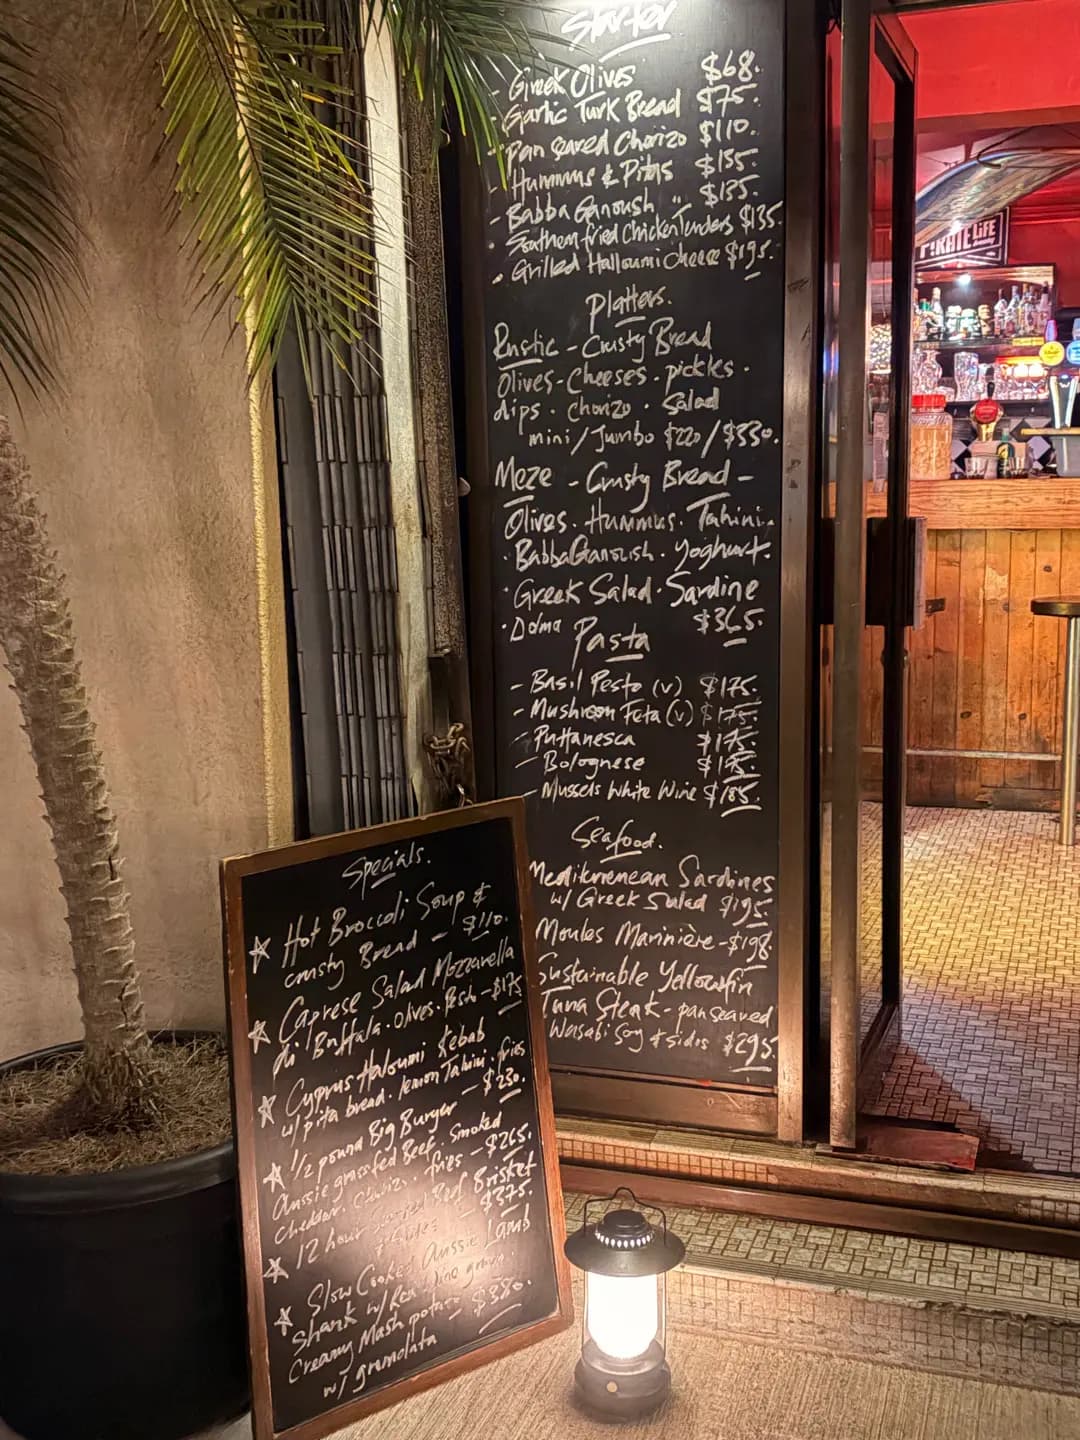 Starter
- Greek Olives $68.
- Garlic Turk Bread $75.
- Pan Seared Chorizo $110.
- Hummus & Pitas $135.
- Babba Ganoush " $135.
- Southern fried Chicken Tenders $135
- Grilled Halloumi Cheese $195.
Platters.
Rustic - Crusty Bread
Olives - Cheeses . pickles .
dips . chorizo . Salad
mini / Jumbo $220 / $330.
Meze - Crusty Bread -
Olives . Hummus . Tahini .
. Babba Ganoush . Yoghurt .
. Greek Salad . Sardine
. Dolma $365.
Pasta
- Basil Pesto (v) $175.
- Mushroom Feta (v) $175.
- Puttanesca $175.
- Bolognese $195.
- Mussels White Wine $185.
Seafood.
Mediterrenean Sardines
w/ Greek Salad $195.
Moules Marinière - $198.
Sustainable Yellowfin
Tuna Steak - pan seared
Wasabi Soy & sides $295.
Specials.
☆ Hot Broccoli Soup &
crusty Bread - $110.
☆ Caprese Salad Mozzarella
di Buffala . Olives . Pesto - $175
☆ Cyprus Haloumi Kebab
w/ pita bread . lemon Tahini . fries
- $230.
☆ 1/2 pound Big Burger
Aussie grassfed Beef . Smoked
Cheddar . Chorizo . fries - $265.
☆ 12 hour Beef Brisket
- $375.
☆ Slow Cooked Aussie Lamb
Shank w/ Red Wine gravy
Creamy Mash potato $380.
w/ gremolata
PIRATE LiFE